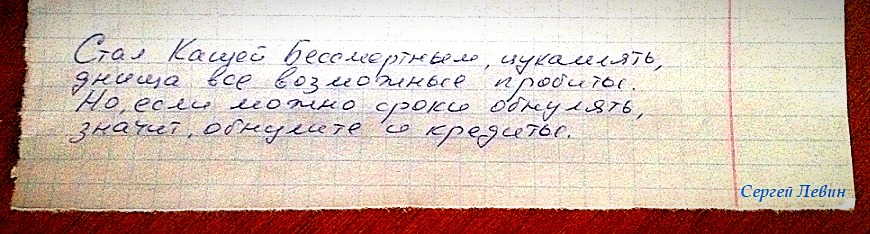 Стал Кащей Бессмертным, цукамлять,
днища все возможные пробиты.
Но, если можно сроки обнулять,
значит, обнулите и кредиты.
Сергей Левин